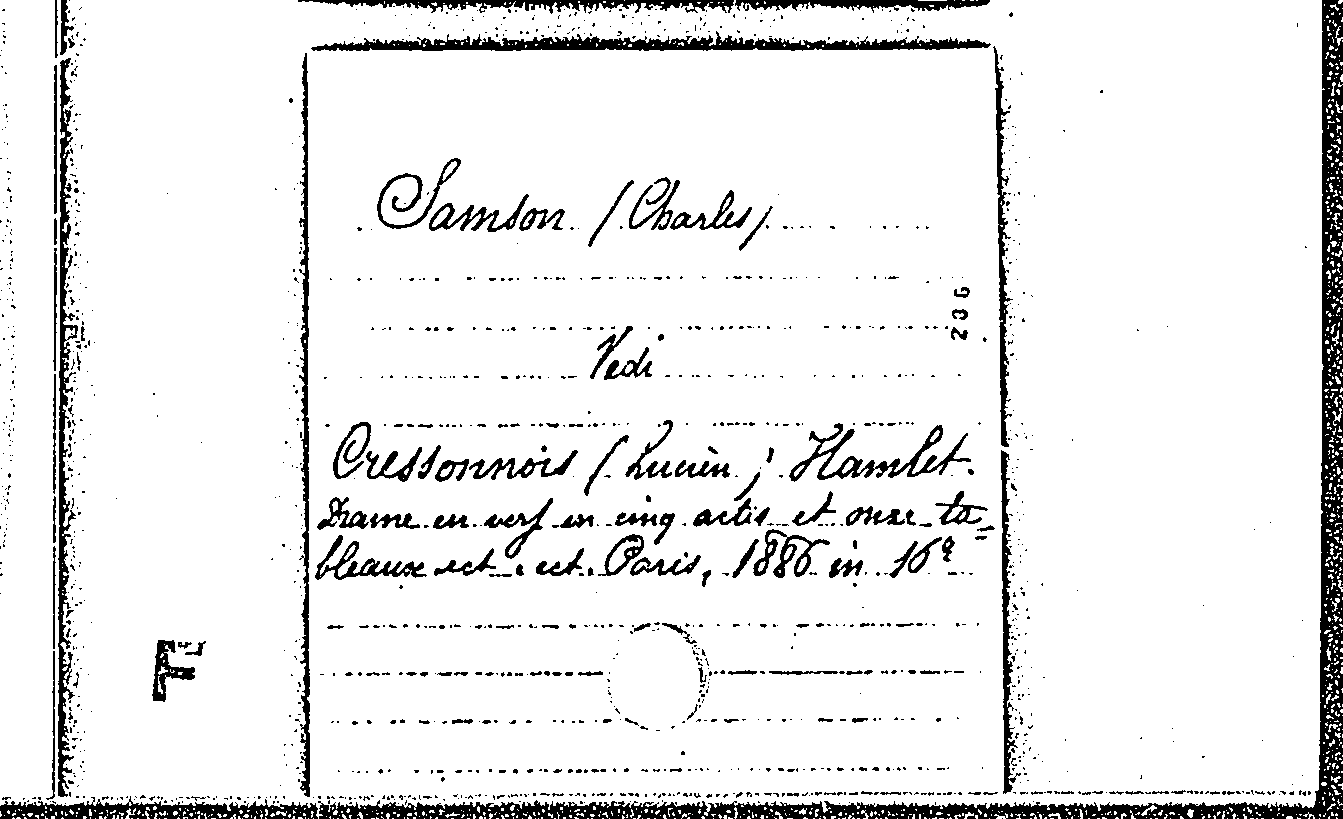 Samson (Charles)
206
Vedi
Cressonnois (Lucien) Hamlet.
Drame en vers en cinq actes et onze ta=
bleaux ect. ect. Paris, 1886 in 16º
F